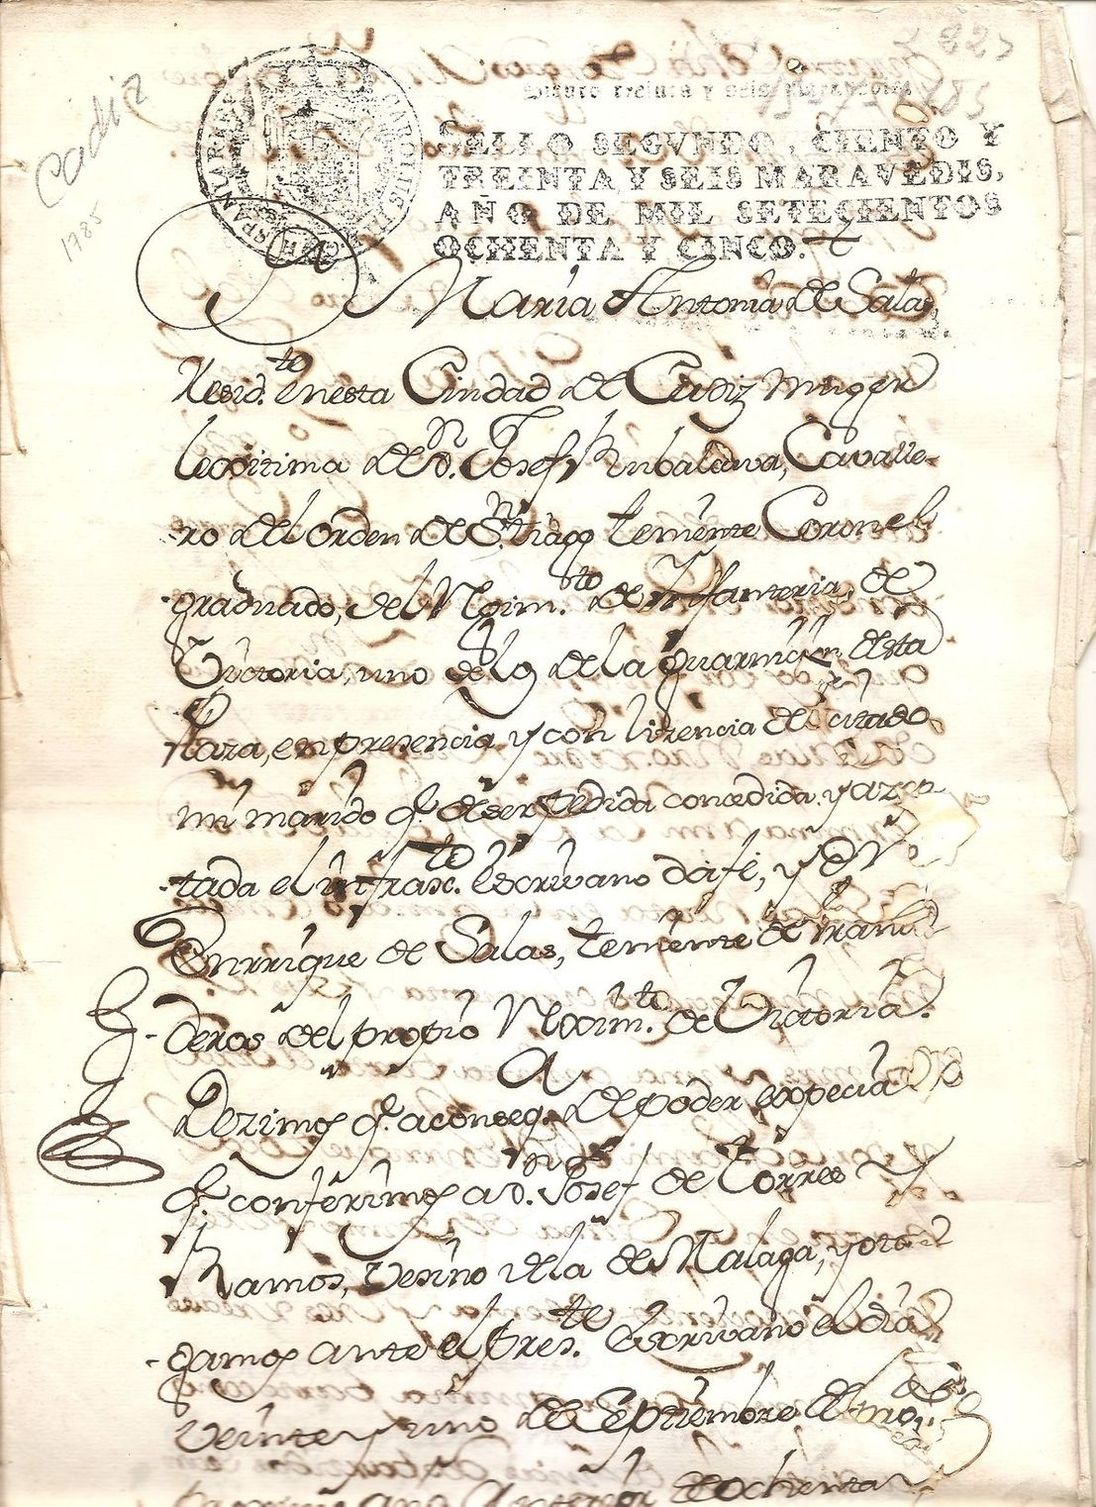 Cadiz
1785
HISPANIARUM
CAROLUS III
SELLO SEGVNDO, CIENTO Y
TREINTA Y SEIS MARAVEDIS,
AÑO DE MIL SETECIENTOS
OCHENTA Y CINCO.
Maria Antonia de Salas,
Resid.te en esta Ciudad de Cadiz muger
legitima de D.n Josef Rubalcava, Cavalle-
ro del orden de S.ntiago teniente Coronel
graduado, del Regim.to de Infanteria, de
Victoria, uno de los de la guarnicion de esta
Plaza, en presencia y con lizencia del citado
mi marido q.e de ser pedida concedida y azep
tada el infrasc.to Escrivano da fe, y D.n
Enrrique de Salas, teniente de
deros del propio Regim.to de Victoria.
Dezimos q.e a conseq.a del poder especial
q.e conferimos a D.n Josef de Torres y
Ramos, vesino de la de Malaga, y otor
gamos ante el pres.te Escrivano el dia
veinte y uno de Septiembre del
año anterior de ochenta